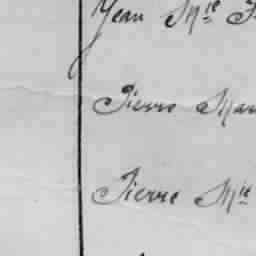 Jean Mie
Pierre Mar
Pierre Mie